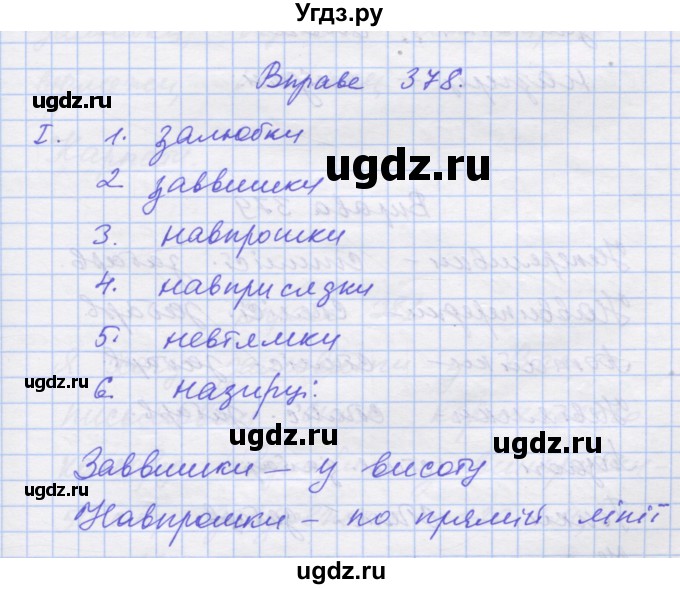 Угдз.ру
Вправа 378.
ugdz.ru
I. 1. залюбки
ugdz.ru
2 заввишки
3. навпрошки
4. навприсядки
5. невтямки
ugdz.ru
6. назирці.
ugdz.ru ugdz.ru
Заввишки – у висоту
ugdz.ru
Навпрошки – по прямій лінії
ugdz.ru